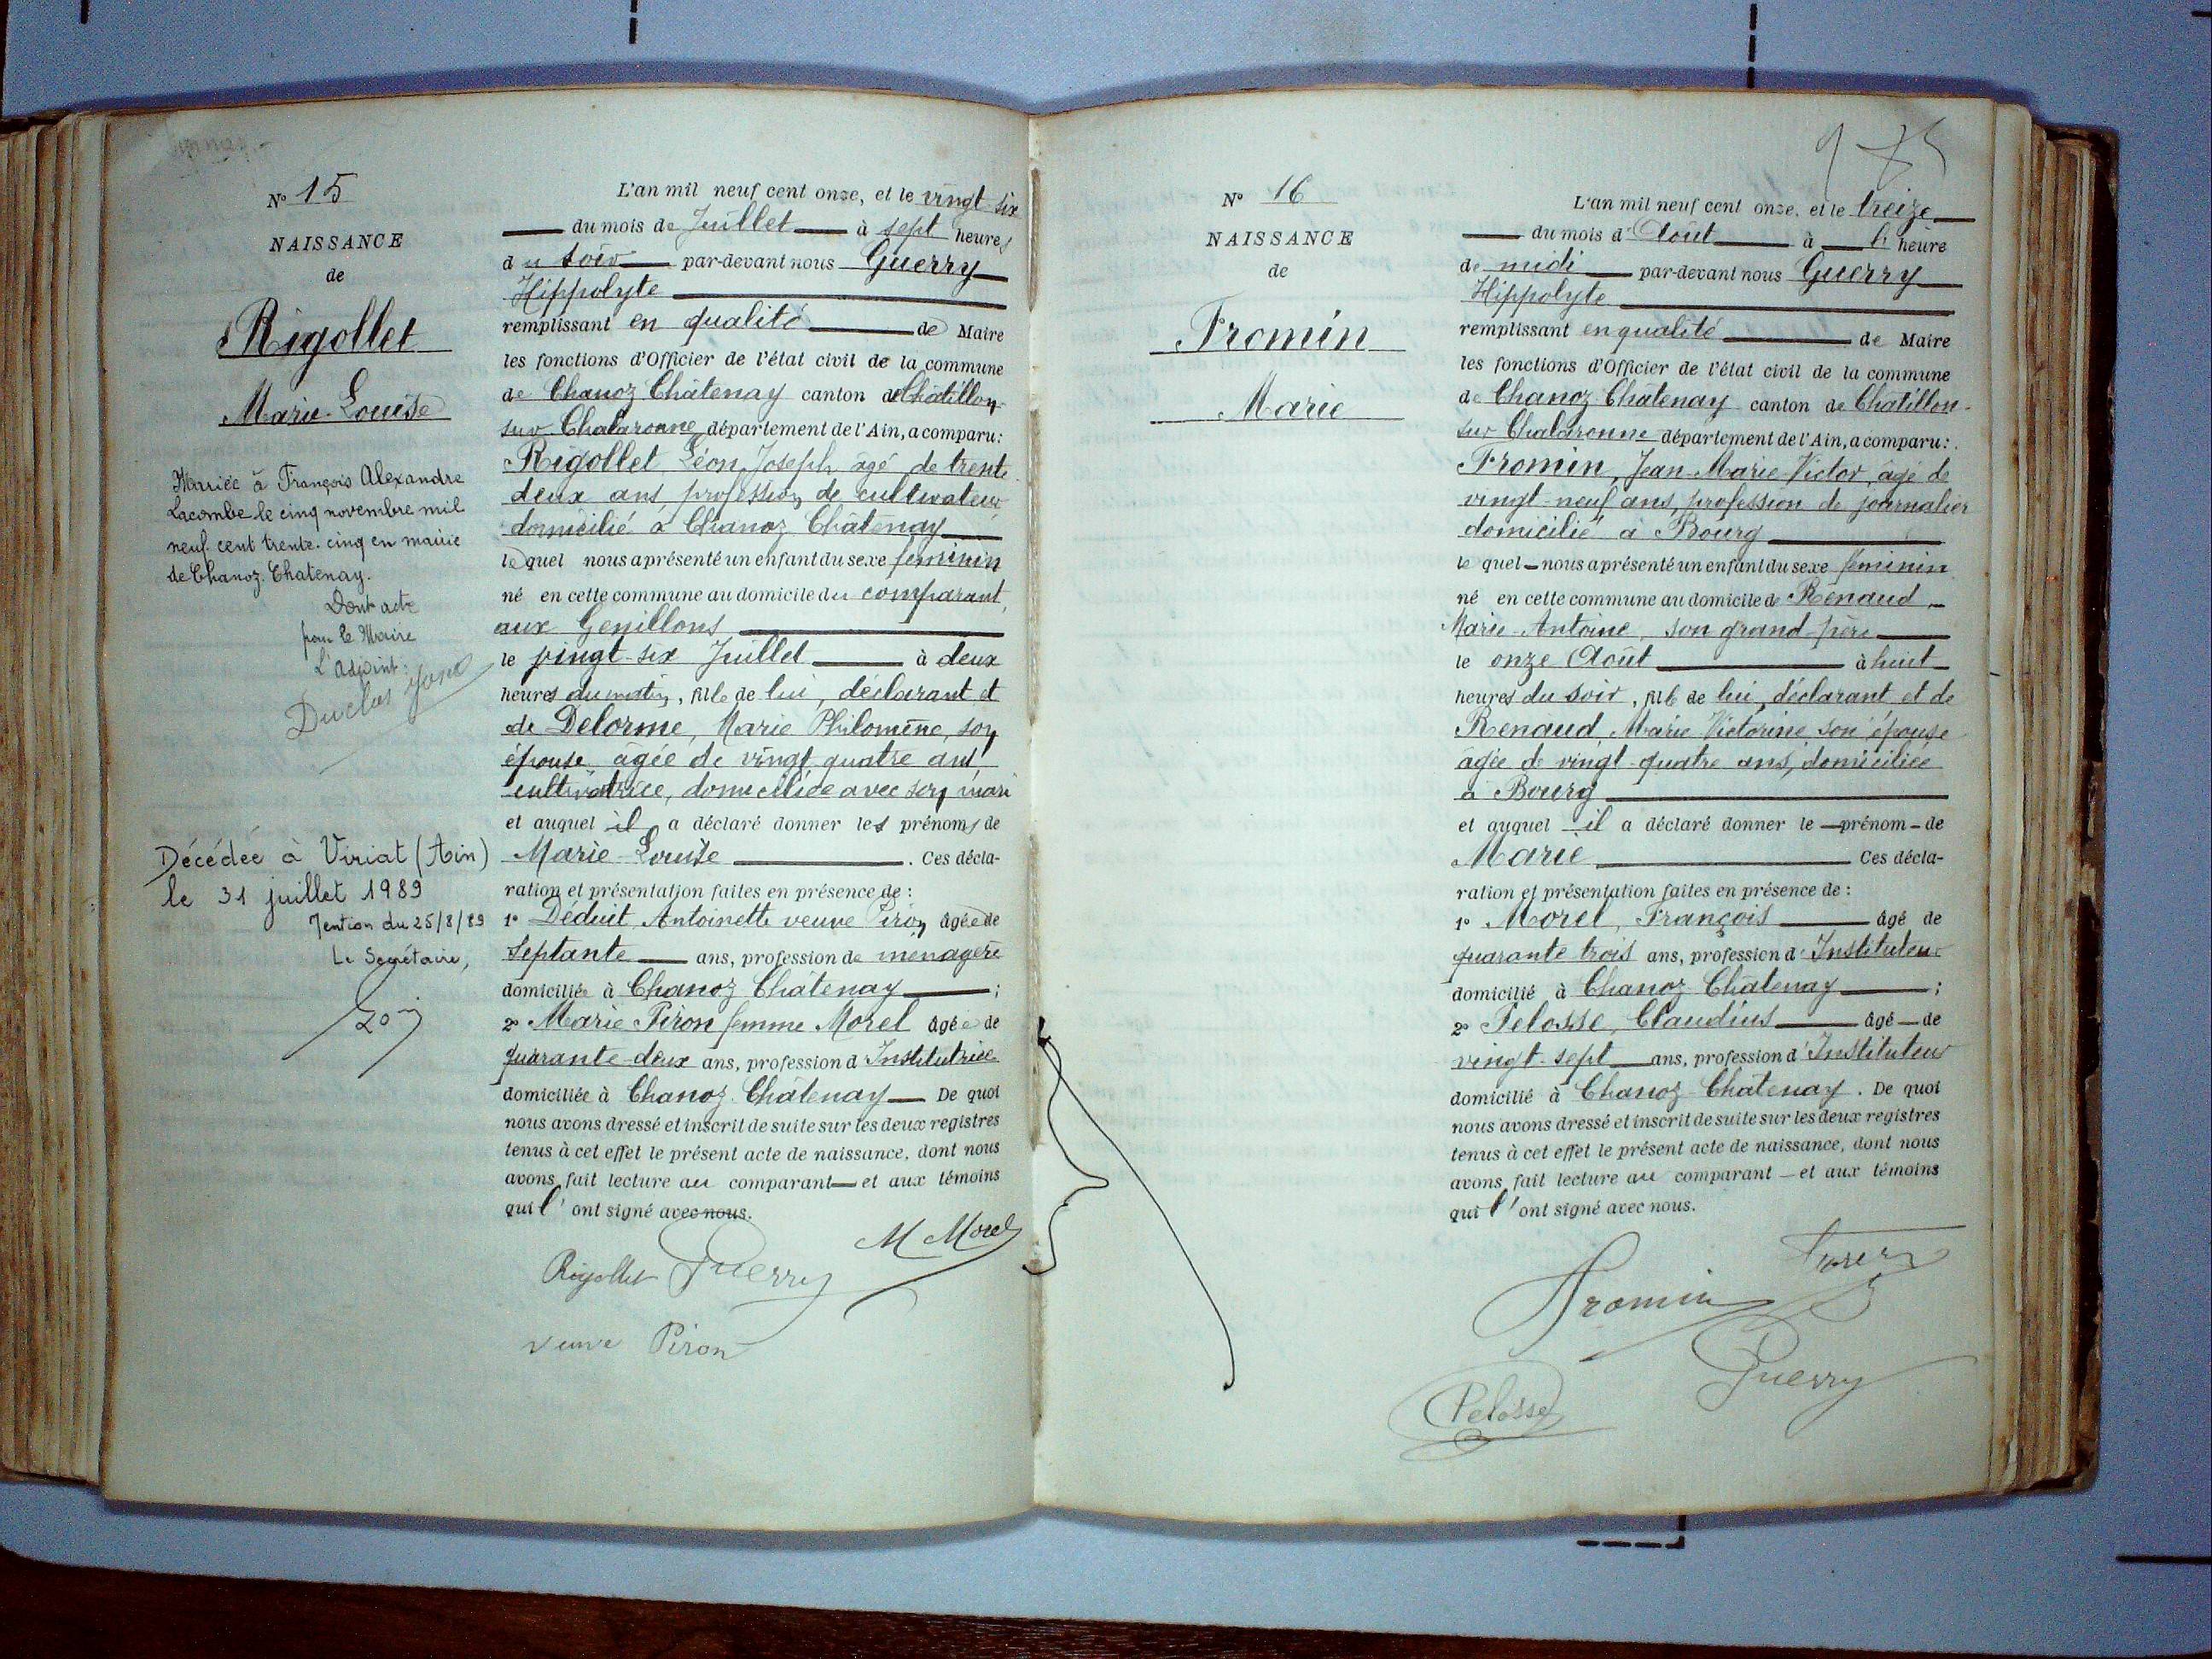 N° 15
NAISSANCE
de
Rigollet
Marie-Louise
Mariée à François Alexandre
Lacombe le cinq novembre mil
neuf cent trente-cinq en mairie
de Chanoz-Chatenay.
Dont acte
pour le Maire
L'adjoint:
Duclos
Décédée à Viriat (Ain)
le 31 juillet 1989
Mention du 25/8/89
Le Secrétaire,
L'an mil neuf cent onze, et le vingt-six
du mois de Juillet à sept heures
du soir par-devant nous Guerry
Hippolyte
remplissant en qualité de Maire
les fonctions d'Officier de l'état civil de la commune
de Chanoz-Châtenay canton de Châtillon-
sur-Chalaronne, département de l'Ain, a comparu:
Rigollet Léon, Joseph, âgé de trente
deux ans, profession de cultivateur
domicilié à Chanoz Châtenay
lequel nous a présenté un enfant du sexe féminin
né en cette commune au domicile du comparant,
aux Genillons
le vingt-six Juillet à deux
heures du matin, fille de lui, déclarant et
de Delorme, Marie Philomène, son
épouse âgée de vingt-quatre ans,
cultivatrice, domiciliée avec son mari
et auquel il a déclaré donner les prénoms de
Marie-Louise. Ces décla-
ration et présentation faites en présence de :
1° Déduit, Antoinette veuve Piron âgée de
Septante ans, profession de ménagère
domiciliée à Chanoz Châtenay ;
2° Marie Piron femme Morel âgée de
quarante-deux ans, profession d Institutrice
domiciliée à Chanoz-Châtenay De quoi
nous avons dressé et inscrit de suite sur les deux registres
tenus à cet effet le présent acte de naissance, dont nous
avons fait lecture au comparant et aux témoins
qui l'ont signé avec nous.
M Morel
Rigollet Guerry
veuve Piron
N° 16
NAISSANCE
de
Fromin
Marie
L'an mil neuf cent onze, et le treize
du mois d'Août à l' heure
de midi par-devant nous Guerry
Hippolyte
remplissant en qualité de Maire
les fonctions d'Officier de l'état civil de la commune
de Chanoz-Châtenay canton de Chatillon-
sur-Chalaronne département de l'Ain, a comparu :
Fromin, Jean-Marie-Victor, âgé de
vingt-neuf ans, profession de journalier
domicilié à Bourg
lequel nous a présenté un enfant du sexe féminin
né en cette commune au domicile de Renaud
Marie-Antoine, son grand-père
le onze Août à huit
heures du soir, fille de lui, déclarant et de
Renaud, Marie Victorine son épouse
âgée de vingt-quatre ans, domiciliée
à Bourg
et auquel il a déclaré donner le prénom de
Marie Ces décla-
ration et présentation faites en présence de :
1° Morel, François âgé de
quarante trois ans, profession d'Instituteur
domicilié à Chanoz-Châtenay ;
2° Pelosse, Claudius âgé de
vingt-sept ans, profession d'Instituteur
domicilié à Chanoz-Châtenay. De quoi
nous avons dressé et inscrit de suite sur les deux registres
tenus à cet effet le présent acte de naissance, dont nous
avons fait lecture au comparant et aux témoins
qui l'ont signé avec nous.
Fromin
Guerry
Pelosse